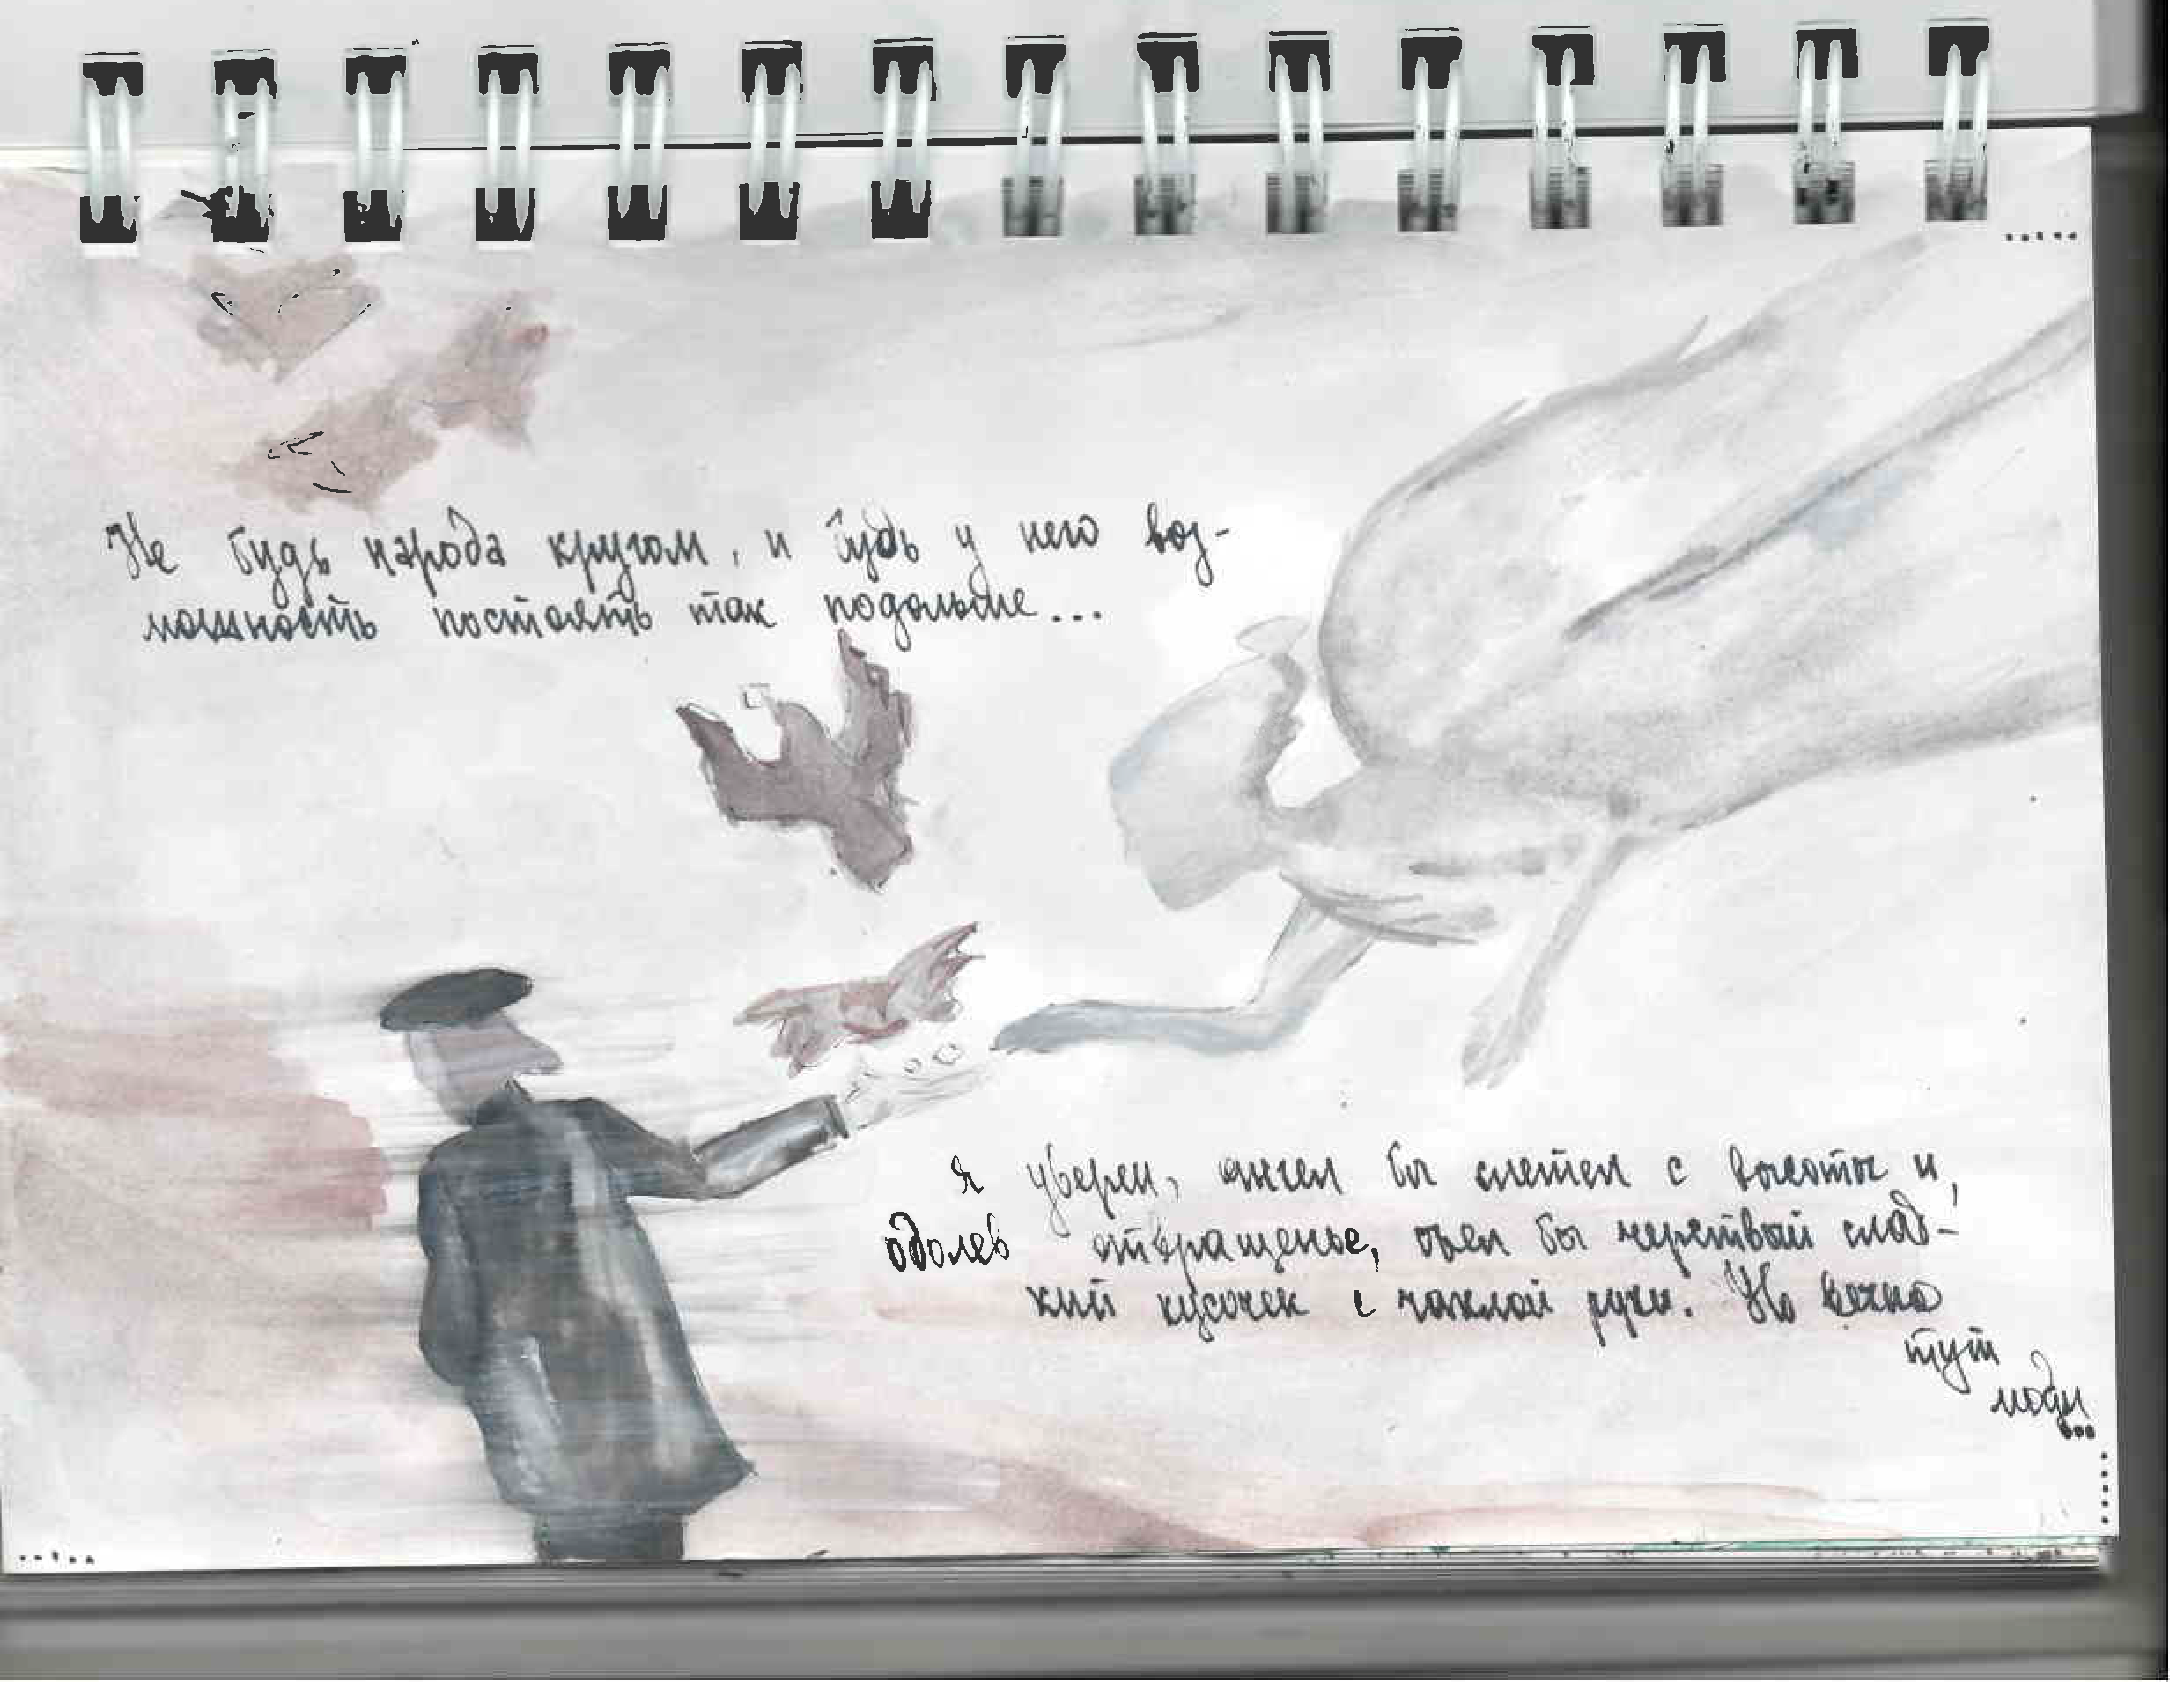 Не будь народа кругом, и будь у него воз-
можность постоять так подольше...
Я уверен, ангел бы слетел с высоты и,
одолев отвращенье, съел бы черствый слад-
кий кусочек с чахлой руки. Но вечно
тут
люди...